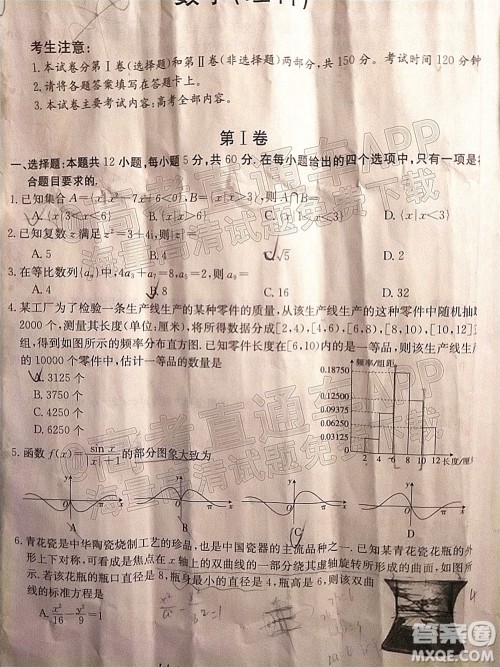 数学(理科)
考生注意:
1.本试卷分第Ⅰ卷(选择题)和第Ⅱ卷(非选择题)两部分,共150分。考试时间120分钟
2.请将各题答案填写在答题卡上。
3.本试卷主要考试内容:高考全部内容。
第Ⅰ卷
一、选择题:本题共12小题,每小题5分,共60分.在每小题给出的四个选项中,只有一项是
合题目要求的.
1.已知集合A={x|x²-7x+6<0},B={x|x<3},则A∩B=
A.{x|1<x<3} B.{x|x<6} D.{x|x<3}
2.已知复数z满足z²=3+4i,则|z|=
A.5 B.4 C.√5 D.2
3.在等比数列{aₙ}中,4a₃=a₅=8,则a₉=
A.4 B.8 C.16 D.32
4.某工厂为了检验一条生产线生产的某种零件的质量,从该生产线生产的零件中随机抽取
2000个,测量其长度(单位:厘米),将所得数据分成[2,4),[4,6),[6,8),[8,10),[10,12]
组,得到如图所示的频率分布直方图.已知零件长度在[6,10)内的是一等品,则该生产线生产
的10000个零件中,估计一等品的数量是
A.3125个
B.3750个
C.4250个
D.6250个
频率/组距
0.18750
0.12500
0.09375
0.06250
0.03125
2 4 6 8 10 12 长度/厘米
5.函数f(x)=sin x/(|x|+1)的部分图象大致为
A B C D
6.青花瓷是中华陶瓷烧制工艺的珍品,也是中国瓷器的主流品种之一.已知某青花瓷花瓶的外
形上下对称,可看成是焦点在x轴上的双曲线的一部分绕其虚轴旋转所形成的曲面,如图所
示.若该花瓶的瓶口直径是8,瓶身最小的直径是4,瓶高是6,则该双曲
线的标准方程是
A.x²/16-y²/9=1
高考直通车APP
海量高清试题免费下载
@高考直通车APP
海量高清试题免费下载
答案圈
MXQE.COM